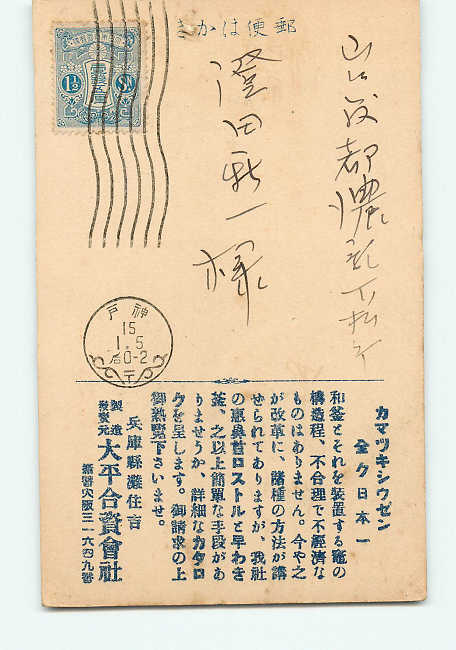 郵便はかき
山口縣都濃郡下松町
澄田新一様
壹錢五厘
1½
Sn
神戸
15
1.5
后0-2
カマツキシウゼン
全ク日本一
和釜とそれを装置する竈の
構造程、不合理で不經濟な
ものはありません。今や之
が改革に、諸種の方法が講
せられてありますが、我社
のロストルと早わき
釜、之以上簡單な手段があ
りませうか、詳細なカタロ
グを呈します。御請求の上
御熟覧下さいませ。
兵庫縣灘住吉
製造發賣元 大平合資會社
振替大阪三一六四九番